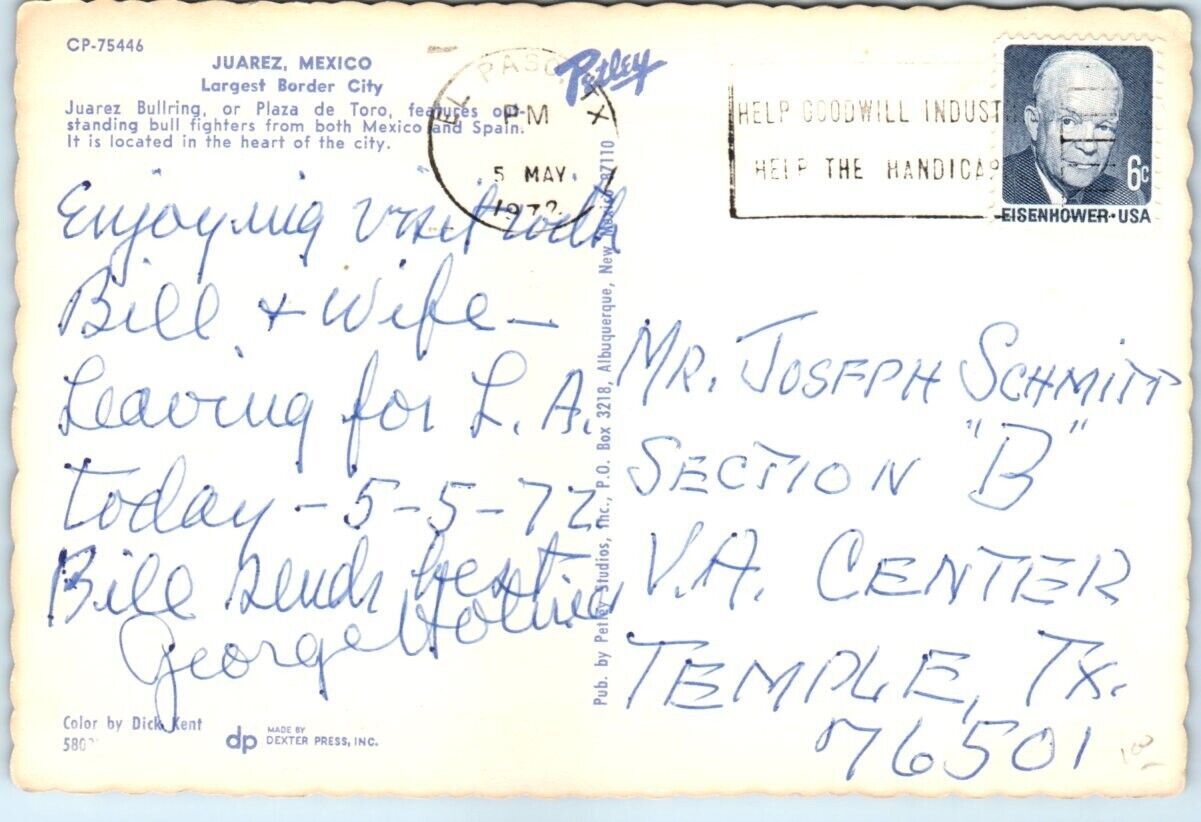 CP-75446
JUAREZ, MEXICO
Largest Border City
Juarez Bullring, or Plaza de Toro, features out-
standing bull fighters from both Mexico and Spain.
It is located in the heart of the city.
Enjoying visit with
Bill + Wife –
Leaving for L.A.
today – 5-5-72
Bill sends best
George
Color by Dick Kent
580
dp MADE BY
DEXTER PRESS, INC.
Pub. by Petley Studios, Inc., P.O. Box 3218, Albuquerque, New Mexico 87110
Petley
EL PASO TX
PM
5 MAY
1972
HELP GOODWILL INDUST
HELP THE HANDICAP
6c
EISENHOWER·USA
MR. JOSEPH SCHMITT
SECTION "B"
V.A. CENTER
TEMPLE, TX.
76501
100